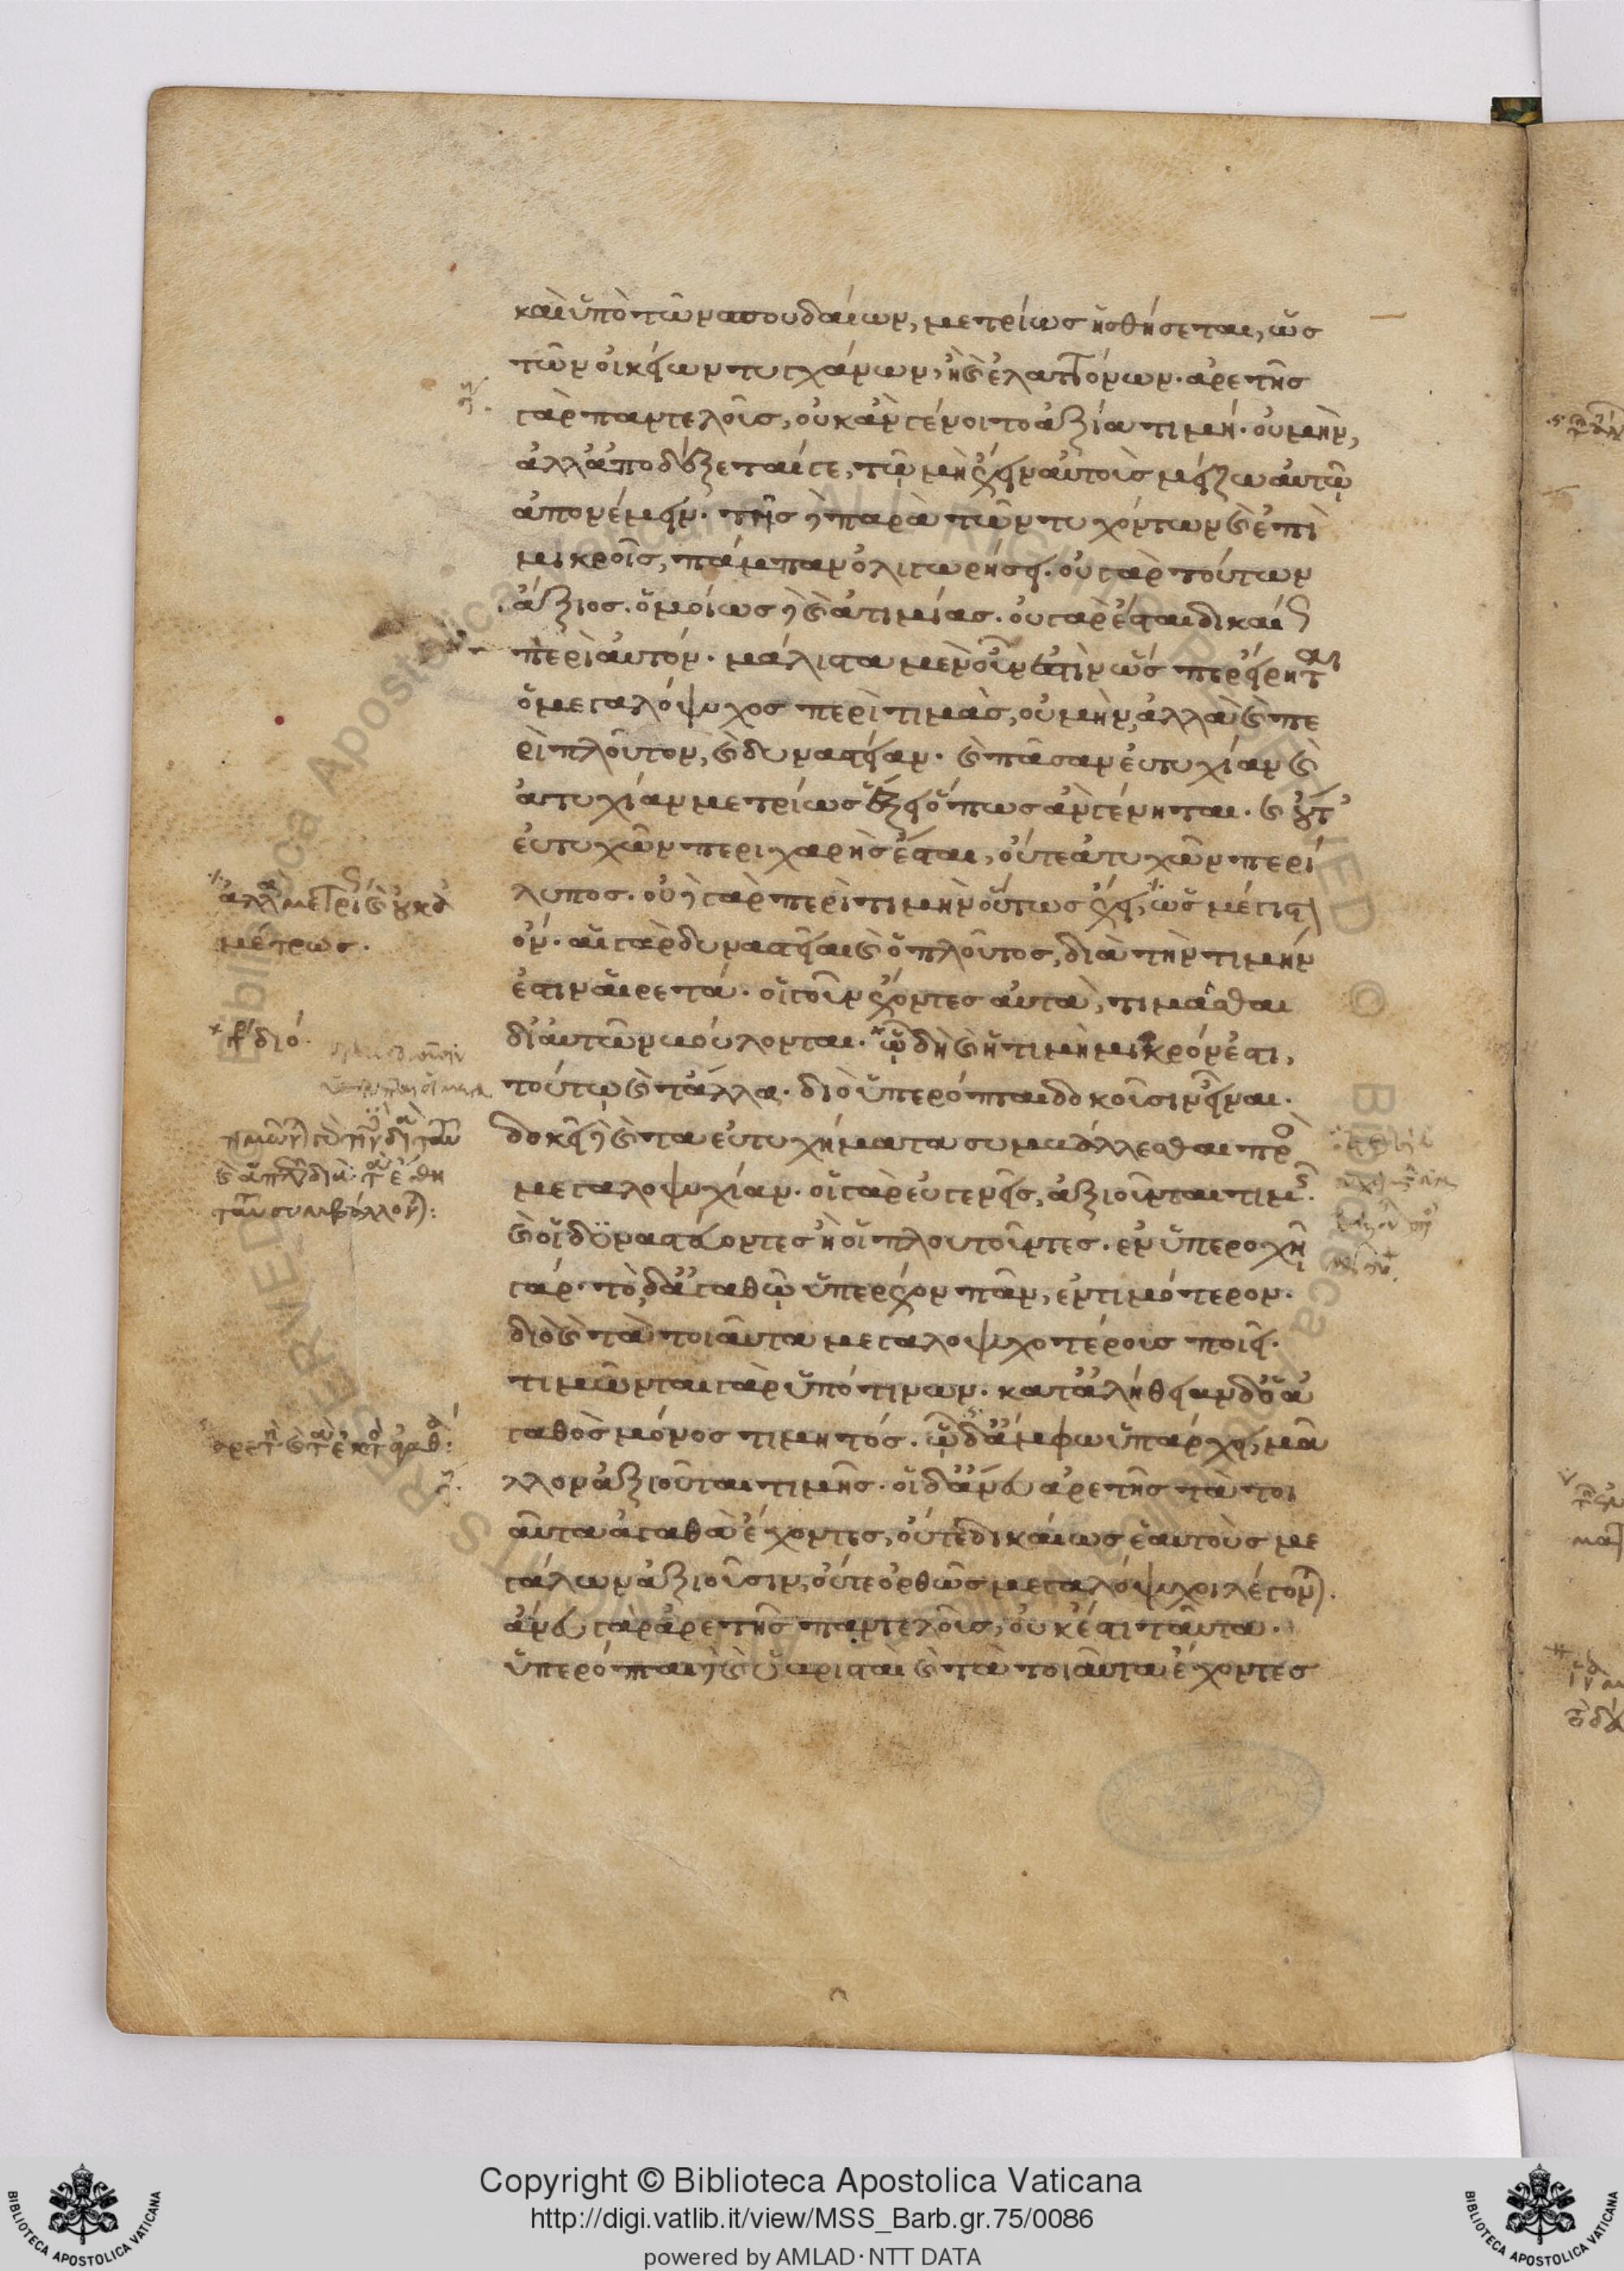 καὶ ὑπὸ τῶν σπουδαίων, μετρίως ἡσθήσεται, ὡς
τῶν οἰκείων τυγχάνων, ἢ καὶ ἐλαττόνων· ἀρετῆς
γὰρ παντελοῦς, οὐκ ἂν γένοιτο ἀξία τιμή· οὐ μὴν,
ἀλλ' ἀποδέξεταί γε, τῷ μὴ ἔχειν αὐτοὺς μείζω αὐτῷ
ἀπονέμειν· τῆς δὲ παρὰ τῶν τυχόντων καὶ ἐπὶ
μικροῖς, πάμπαν ὀλιγωρήσει· οὐ γὰρ τούτων
ἄξιος· ὁμοίως δὲ καὶ ἀτιμίας· οὐ γὰρ ἔσται δικαί
περὶ αὐτόν· μάλιστα μὲν οὖν ἐστὶν ὥσπερ εἴρηται
ὁ μεγαλόψυχος περὶ τιμάς, οὐ μὴν, ἀλλὰ καὶ πε
ρὶ πλοῦτον, καὶ δυναστείαν· καὶ πᾶσαν εὐτυχίαν καὶ
ἀτυχίαν μετρίως ἕξει ὅπως ἂν γένηται· καὶ οὔτ'
εὐτυχῶν περιχαρὴς ἔσται, οὔτε ἀτυχῶν περί
λυπος· οὐδὲ γὰρ περὶ τιμὴν οὕτως ἔχει, ὡς μέγιστ
όν· αἱ γὰρ δυναστεῖαι καὶ ὁ πλοῦτος, διὰ τὴν τιμήν
ἐστιν αἱρετά· οἱ γοῦν ἔχοντες αὐτὰ, τιμᾶσθαι
δι' αὐτῶν βούλονται· ᾧ δὴ καὶ ἡ τιμὴ μικρόν ἐστι,
τούτῳ καὶ τἆλλα· διὸ ὑπερόπται δοκοῦσιν εἶναι·
δοκεῖ δὲ καὶ τὰ εὐτυχήματα συμβάλλεσθαι πρὸ
μεγαλοψυχίαν· οἱ γὰρ εὐγενεῖς, ἀξιοῦνται τιμῆς·
καὶ οἱ δυναστεύοντες ἢ οἱ πλουτοῦντες· ἐν ὑπεροχῇ
γάρ· τὸ δ' ἀγαθῷ ὑπερέχον πᾶν, ἐντιμότερον·
διὸ καὶ τὰ τοιαῦτα μεγαλοψυχοτέρους ποιεῖ·
τιμῶνται γὰρ ὑπό τινων· κατ' ἀλήθειαν δ' ὁ ἀ
γαθὸς μόνος τιμητός· ᾧ δ' ἄμφω ὑπάρχει, μᾶ
λλον ἀξιοῦται τιμῆς· οἱ δ' ἄνευ ἀρετῆς τὰ τοι
αῦτα ἀγαθὰ ἔχοντες, οὔτε δικαίως ἑαυτοὺς με
γάλων ἀξιοῦσιν, οὔτε ὀρθῶς μεγαλόψυχοι λέγονται·
ἄνευ γὰρ ἀρετῆς παντελοῦς, οὐκ ἔστι ταῦτα·
ὑπερόπται δὲ καὶ ὑβρισταὶ καὶ τὰ τοιαῦτα ἔχοντες
μέτρως·
διό·
Copyright © Biblioteca Apostolica Vaticana
http://digi.vatlib.it/view/MSS_Barb.gr.75/0086
powered by AMLAD·NTT DATA
BIBLIOTECA APOSTOLICA VATICANA
BIBLIOTECA APOSTOLICA VATICANA